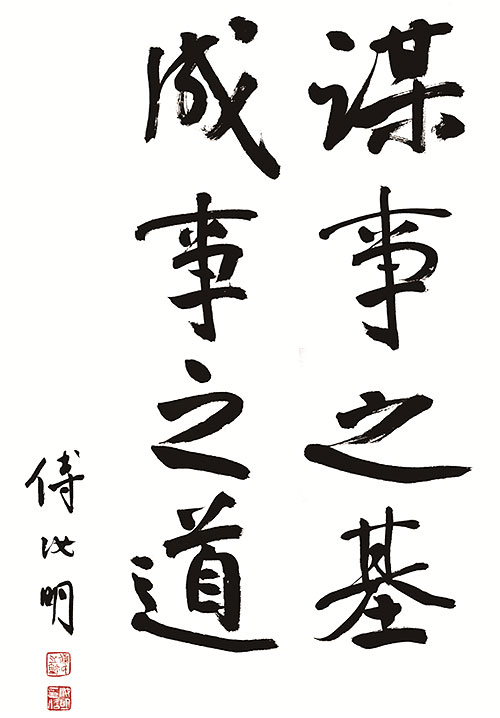 谋事之基
成事之道
傅 明